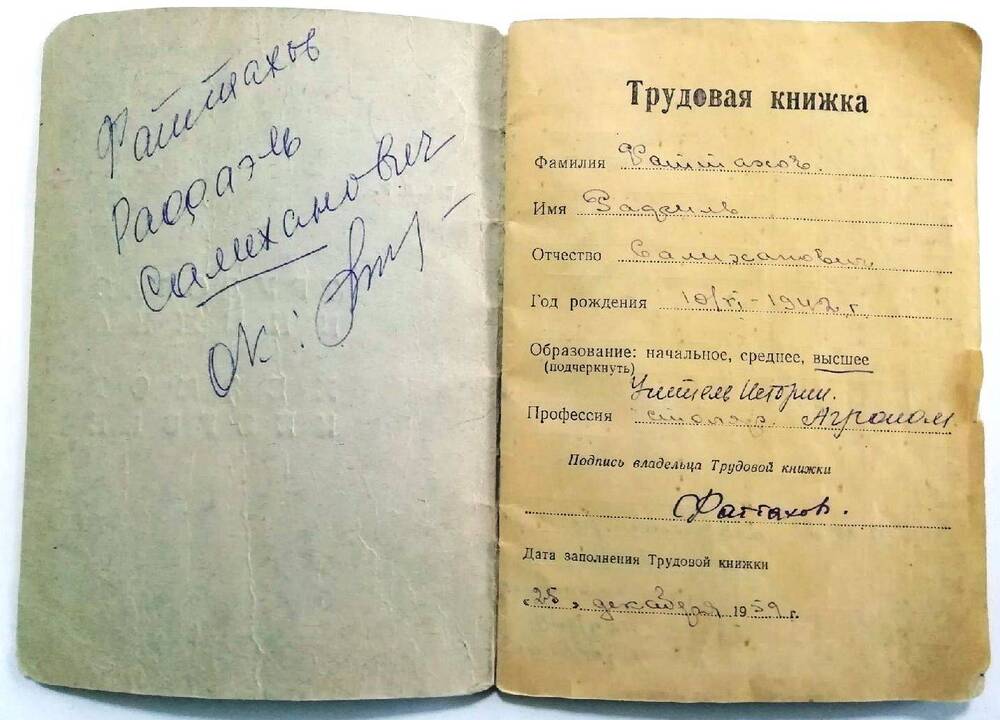 Фаттахов
Рафаэль
Самиханович
ОК:
Трудовая книжка
Фамилия Фаттахов.
Имя
Отчество Салиханович
Год рождения 10/XI-1942 г.
Образование: начальное, среднее, высшее
(подчеркнуть)
Учитель Истории.
Профессия столяр. Агроном
Подпись владельца Трудовой книжки
Фаттахов.
Дата заполнения Трудовой книжки
«25» декабря 1959 г.